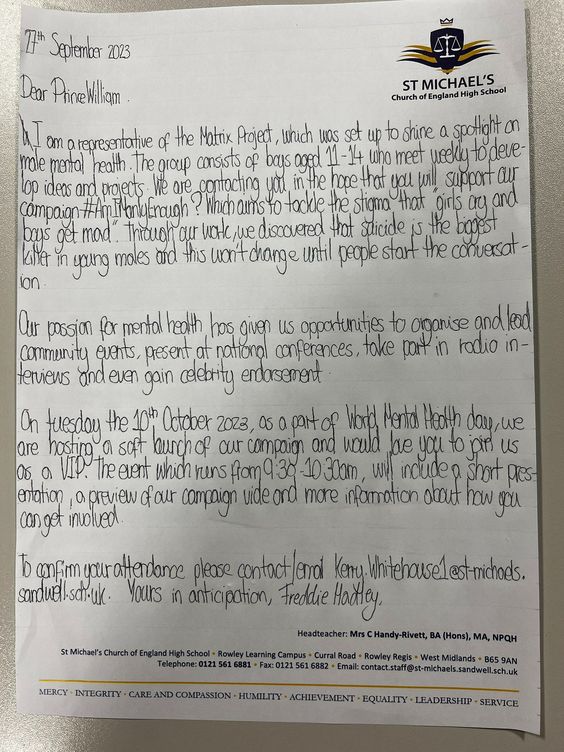 27th September 2023
ST MICHAEL'S
Church of England High School
Dear Prince William.
I am a representative of the Matrix Project, which was set up to shine a spotlight on
male mental health. The group consists of boys aged 11-14 who meet weekly to deve-
lop ideas and projects. We are contacting you in the hope that you will support our
campaign #AmIManlyEnough? Which aims to tackle the stigma that "girls cry and
boys get mad". Through our work, we discovered that suicide is the biggest
killer in young males and this won't change until people start the conversat-
ion.
Our passion for mental health has given us opportunities to organise and lead
community events, present at national conferences, take part in radio in-
terviews and even gain celebrity endorsement.
On tuesday the 10th October 2023, as a part of World Mental Health day, we
are hosting a soft launch of our campaign and would love you to join us
as a VIP. The event which runs from 9:30-10:30am, will include a short pres-
entation, a preview of our campaign vide and more information about how you
can get involved.
To confirm your attendance please contact/email Kerry.Whitehouse1@st-michaels.
sandwell.sch.uk. Yours in anticipation, Freddie Hadley,
Headteacher: Mrs C Handy-Rivett, BA (Hons), MA, NPQH
St Michael's Church of England High School • Rowley Learning Campus • Curral Road • Rowley Regis • West Midlands • B65 9AN
Telephone: 0121 561 6881 • Fax: 0121 561 6882 • Email: contact.staff@st-michaels.sandwell.sch.uk
MERCY • INTEGRITY • CARE AND COMPASSION • HUMILITY • ACHIEVEMENT • EQUALITY • LEADERSHIP • SERVICE